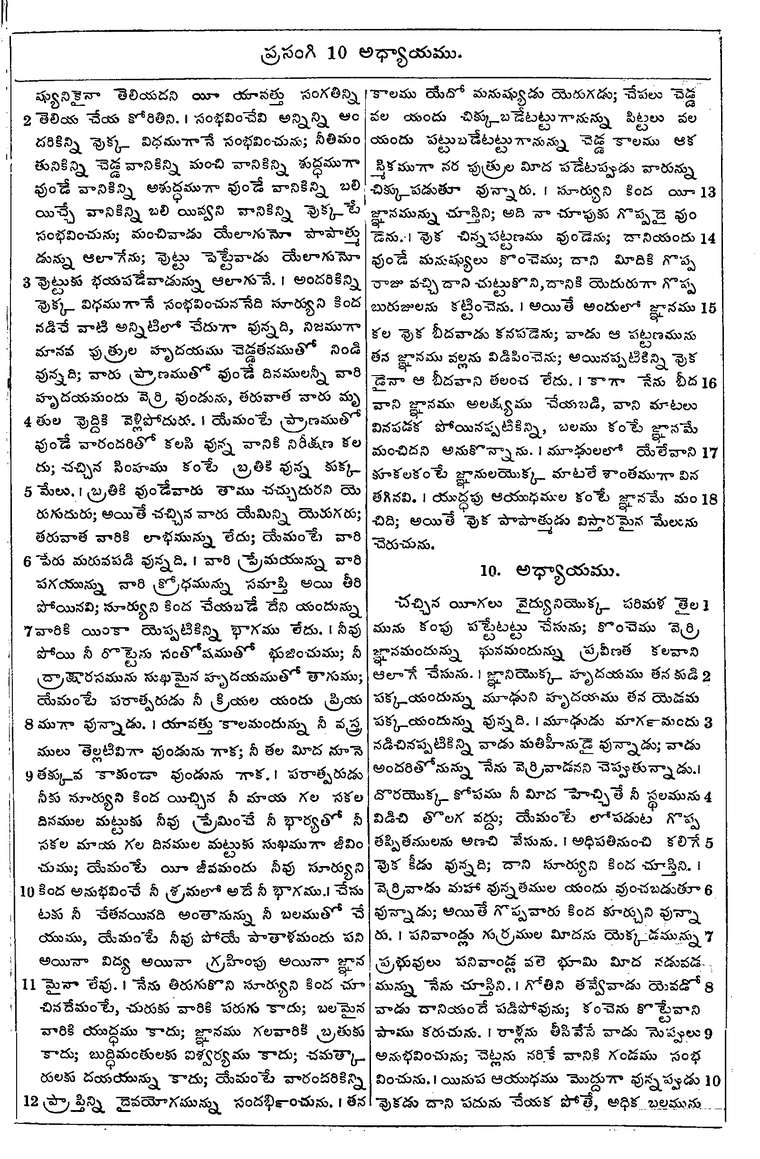 ప్రసంగి 10 అధ్యాయము.
ష్యునికైనా తెలియదని యీ యావత్తు సంగతిన్ని
2 తెలియ చేయ కోరితిని. । సంభవించేవి అన్నిన్ని అం
దరికిన్ని వొక్క విధముగానే సంభవించును; నీతిమం
తునికిన్ని చెడ్డ వానికిన్ని మంచి వానికిన్ని శుద్ధముగా
వుండే వానికిన్ని అశుద్ధముగా వుండే వానికిన్ని బలి
యిచ్చే వానికిన్ని బలి యివ్వని వానికిన్ని వొక్కటే
సంభవించును; మంచివాడు యేలాగునో పాపాత్ము
డున్ను ఆలాగేను; వొట్టు పెట్టేవాడు యేలాగునో
3 వొట్టుకు భయపడేవాడున్ను ఆలాగునే. । అందరికిన్ని
వొక్క విధముగానే సంభవించుననేది సూర్యుని కింద
నడిచే వాటి అన్నిటిలో చేదుగా వున్నది, నిజముగా
మానవ పుత్రుల హృదయము చెడ్డతనముతో నిండి
వున్నది; వారు ప్రాణముతో వుండే దినములన్నీ వారి
హృదయమందు వెర్రి వుండును, తరువాత వారు మృ
4 తుల వొద్దికి వెళ్లిపోదురు. । యేమంటే ప్రాణముతో
వుండే వారందరితో కలసి వున్న వానికి నిరీక్షణ కల
దు; చచ్చిన సింహము కంటే బ్రతికి వున్న కుక్క
5 మేలు. । బ్రతికి వుండేవారు తాము చచ్చుదురని యె
రుగుదురు; అయితే చచ్చిన వారు యేమిన్ని యెరుగరు;
తరువాత వారికి లాభమున్ను లేదు; యేమంటే వారి
6 పేరు మరువపడి వున్నది. । వారి ప్రేమయున్ను వారి
పగయున్ను వారి క్రోధమున్ను సమాప్తి అయి తీరి
పోయినవి; సూర్యుని కింద చేయబడే దేని యందున్ను
7 వారికి యింకా యెప్పటికిన్ని భాగము లేదు. । నీవు
పోయి నీ రొట్టెను సంతోషముతో భుజించుము; నీ
ద్రాక్షారసమును సుఖమైన హృదయముతో తాగుము;
యేమంటే పరాత్పరుడు నీ క్రియల యందు ప్రియ
8 ముగా వున్నాడు. । యావత్తు కాలమందున్ను నీ వస్త్ర
ములు తెల్లటివిగా వుండును గాక; నీ తల మీద నూనె
9 తక్కువ కాకుండా వుండును గాక. । పరాత్పరుడు
నీకు సూర్యుని కింద యిచ్చిన నీ మాయ గల సకల
దినముల మట్టుకు నీవు ప్రేమించే నీ భార్యతో నీ
సకల మాయ గల దినముల మట్టుకు సుఖముగా జీవిం
చుము; యేమంటే యీ జీవమందు నీవు సూర్యుని
10 కింద అనుభవించే నీ శ్రమలో అదే నీ భాగము. । చేసు
టకు నీ చేతనయినది అంతానున్ను నీ బలముతో చే
యుము, యేమంటే నీవు పోయే పాతాళమందు పని
అయినా విద్య అయినా గ్రహింపు అయినా జ్ఞాన
11 మైనా లేవు. । నేను తిరుగుకొని సూర్యుని కింద చూ
చినదేమంటే, చురుకు వారికి పరుగు కాదు; బలమైన
వారికి యుద్ధము కాదు; జ్ఞానము గలవారికి బ్రతుకు
కాదు; బుద్ధిమంతులకు ఐశ్వర్యము కాదు; చమత్కా
రులకు దయయున్ను కాదు; యేమంటే వారందరికిన్ని
12 ప్రాప్తిన్ని దైవయోగమున్ను సందర్భించును. । తన
కాలము యేదో మనుష్యుడు యెరుగడు; చేపలు చెడ్డ
వల యందు చిక్కుబడేటట్టుగానున్ను పిట్టలు వల
యందు పట్టుబడేటట్టుగానున్ను చెడ్డ కాలము ఆక
స్మికముగా నర పుత్రుల మీద పడేటప్పుడు వారున్ను
చిక్కుపడుతూ వున్నారు. । సూర్యుని కింద యీ 13
జ్ఞానమున్ను చూస్తిని; అది నా చూపుకు గొప్పదై వుం
డెను. । వొక చిన్నపట్టణము వుండెను; దానియందు 14
వుండే మనుష్యులు కొంచెము; దాని మీదికి గొప్ప
రాజు వచ్చి దాని చుట్టుకొని, దానికి యెదురుగా గొప్ప
బురుజులను కట్టించెను. । అయితే అందులో జ్ఞానము 15
కల వొక బీదవాడు కనపడెను; వాడు ఆ పట్టణమును
తన జ్ఞానము వల్లను విడిపించెను; అయినప్పటికిన్ని వొక
డైనా ఆ బీదవాని తలంచ లేదు. । కాగా నేను బీద 16
వాని జ్ఞానము అలక్ష్యము చేయబడి, వాని మాటలు
వినపడక పోయినప్పటికిన్ని, బలము కంటే జ్ఞానమే
మంచిదని అనుకొన్నాను. । మూఢులలో యేలేవాని 17
కూకలకంటే జ్ఞానులయొక్క మాటలే శాంతముగా విన
తగినవి. । యుద్ధపు ఆయుధముల కంటే జ్ఞానమే మం 18
చిది; అయితే వొక పాపాత్ముడు విస్తారమైన మేలును
చెరుచును.
10. అధ్యాయము.
చచ్చిన యీగలు వైద్యునియొక్క పరిమళ తైల 1
మును కంపు పట్టేటట్టు చేసును; కొంచెము వెర్రి
జ్ఞానమందున్ను ఘనమందున్ను ప్రవీణత కలవాని
ఆలాగే చేసును. । జ్ఞానియొక్క హృదయము తన కుడి 2
పక్కయందున్ను మూఢుని హృదయము తన యెడమ
పక్కయందున్ను వున్నది. । మూఢుడు మార్గమందు 3
నడిచినప్పటికిన్ని వాడు మతిహీనుడై వున్నాడు; వాడు
అందరితోనున్ను నేను వెర్రివాడనని చెప్పుతున్నాడు. ।
దొరయొక్క కోపము నీ మీద హెచ్చితే నీ స్థలమును 4
విడిచి తొలగ వద్దు; యేమంటే లోపడుట గొప్ప
తప్పితములను అణచి వేసును. । అధిపతినుంచి కలిగే 5
వొక కీడు వున్నది; దాని సూర్యుని కింద చూస్తిని. ।
వెర్రివాడు మహా వున్నతముల యందు వుంచబడుతూ 6
వున్నాడు; అయితే గొప్పవారు కింద కూర్చుని వున్నా
రు. । పనివాండ్లు గుర్రముల మీదను యెక్కడమున్ను 7
ప్రభువులు పనివాండ్ల వలె భూమి మీద నడువడ
మున్ను నేను చూస్తిని. । గోతిని తవ్వేవాడు యెవడో 8
వాడు దానియందే పడిపోవును; కంచెను కొట్టేవాని
పాము కరుచును. । రాళ్లను తీసివేసే వాడు నొప్పులు 9
అనుభవించును; చెట్లను నరికే వానికి గండము సంభ
వించును. । యినుప ఆయుధము మొద్దుగా వున్నప్పుడు 10
వొకడు దాని పదును చేయక పోతే, అధిక బలమును